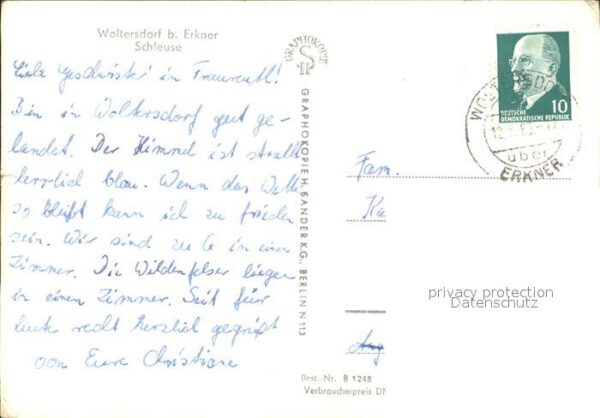 Woltersdorf b. Erkner
Schleuse
Liebe Geschwister in Fraureuth!
Bin in Woltersdorf gut ge-
landet. Der Himmel ist strahlt
herrlich blau. Wenn das Wett
so bleibt kann ich zu frieden
sein. Wir sind zu 6 in einem
Zimmer. Die Wildenfelser liegen
in einem Zimmer. Seit für
heute recht herzlich gegrüßt
von Eure Christiane
GRAPHOKOPIE
GRAPHOKOPIE H. SANDER K.G., BERLIN N 113
Best.-Nr. B 1248
Verbraucherpreis DM
10
DEUTSCHE
DEMOKRATISCHE REPUBLIK
WOLTERSDORF
über
ERKNER
Fam.
Ka
privacy protection
Datenschutz